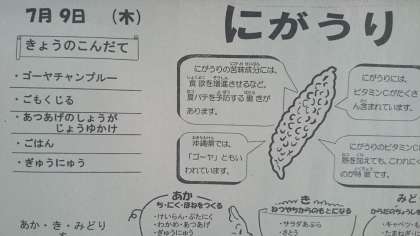 7月9日（木）
にがうり
きょうのこんだて
・ゴーヤチャンプルー
・ごもくじる
・あつあげのしょうが
じょうゆかけ
・ごはん
・ぎゅうにゅう
にがうりの苦味成分には、
食欲を増進させるなど、
夏バテを予防する働きが
あります。
沖縄県では、
「ゴーヤ」ともい
われています。
にがうりには、
ビタミンCがたくさ
ん含まれています。
にがうりのビタミンC
熱を加えても、こわれに
のが特徴です。
あか・き・みどり
あか
ち・にく・ほねをつくる
・けいらん・ぶたにく
・わかめ・あつあげ
・ぎゅうにゅう
き
ねつやちからのもとになる
・サラダあぶら
・さとう
みど
からだのちょうし
・キャベツ・
・たまねぎ